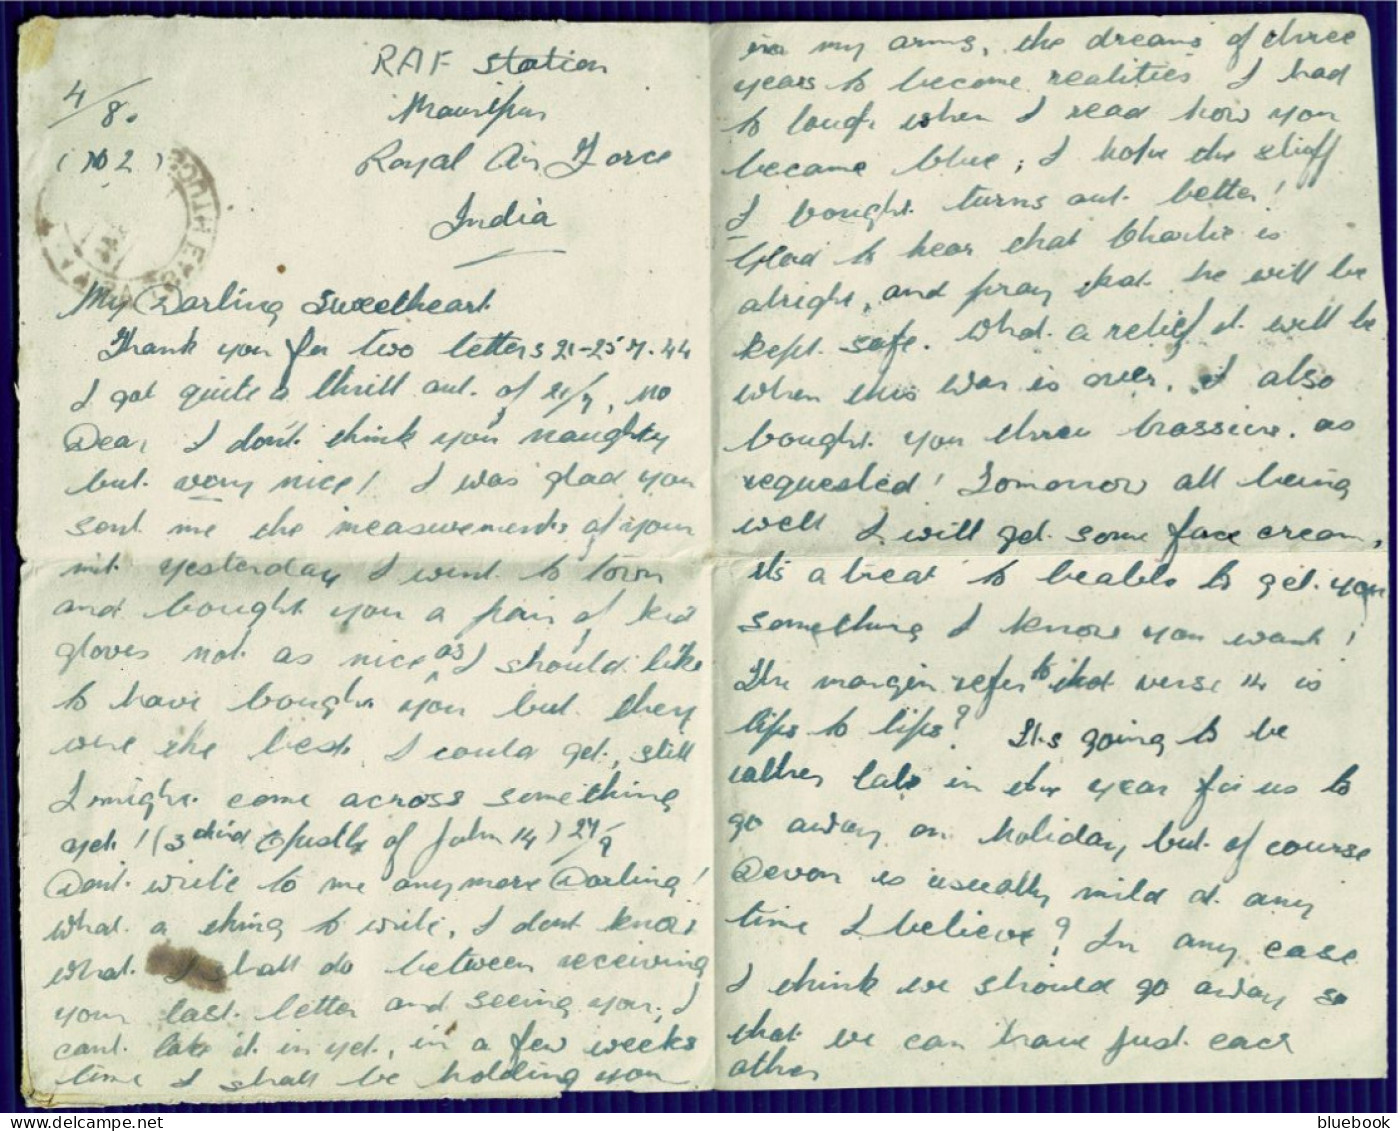 4/8.
(No 2)
RAF Station
Mauripur
Royal Air Force
India
SOUTHEAS
My Darling Sweetheart
Thank you for two letters 21-25 7.44
I got quite a thrill out of 21/7, no
Dear, I don't think you naughty
but very nice! I was glad you
sent me the measurements of your
mit yesterday I went to town
and bought you a pair of kid
gloves not as nice as I should like
to have bought you but they
were the best I could get, still
I might come across something
yet! (3 third Epistle of John 14) 27/9
Don't write to me anymore Darling!
What a thing to write, I dont know
what I shall do between receiving
your last letter and seeing you, I
cant take it in yet, in a few weeks
time I shall be holding you
in my arms, the dreams of three
years to become realities I had
to laugh when I read how you
became blue; I hope the stuff
I bought turns out better!
Glad to hear that Charlie is
alright, and pray that he will be
kept safe. What a relief it will be
when this war is over, I also
bought you three brassiere, as
requested! Tomorrow all being
well I will get some face cream,
its a treat to beable to get you
something I know you want!
The margin refer to that verse 14 is
lips to lips? Its going to be
rather late in the year for us to
go away on holiday but of course
Devon is usually mild at any
time I believe? In any case
I think we should go away so
that we can have just each
other
bluebook